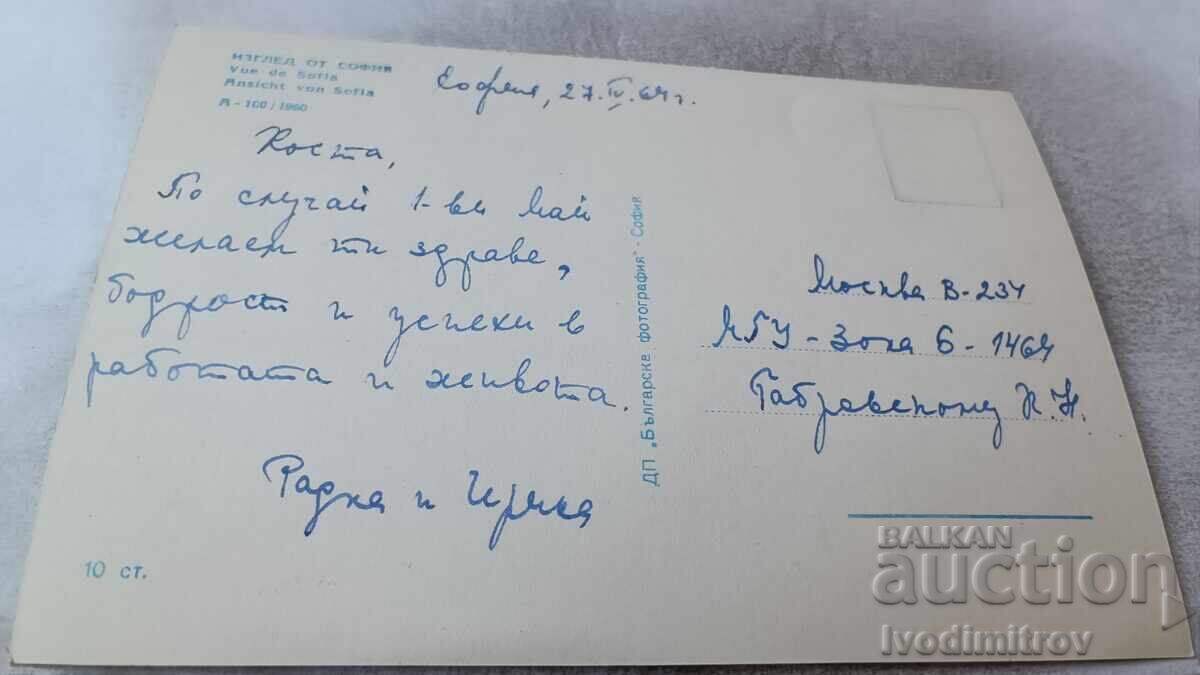 ИЗГЛЕД ОТ СОФИЯ
Vue de Sofia
Ansicht von Sofia
А - 100 / 1960
София, 27.IV.64 г.
Коста,
По случай 1-ви май
желаем ти здраве,
бодрост и успехи в
работата и живота.
Радка и
10 ст.
ДП „Българска фотография" - София
Москва В-234
МГУ - Зона Б - 1464
Габровскому К. Н.
BALKAN
auction
Ivodimitrov